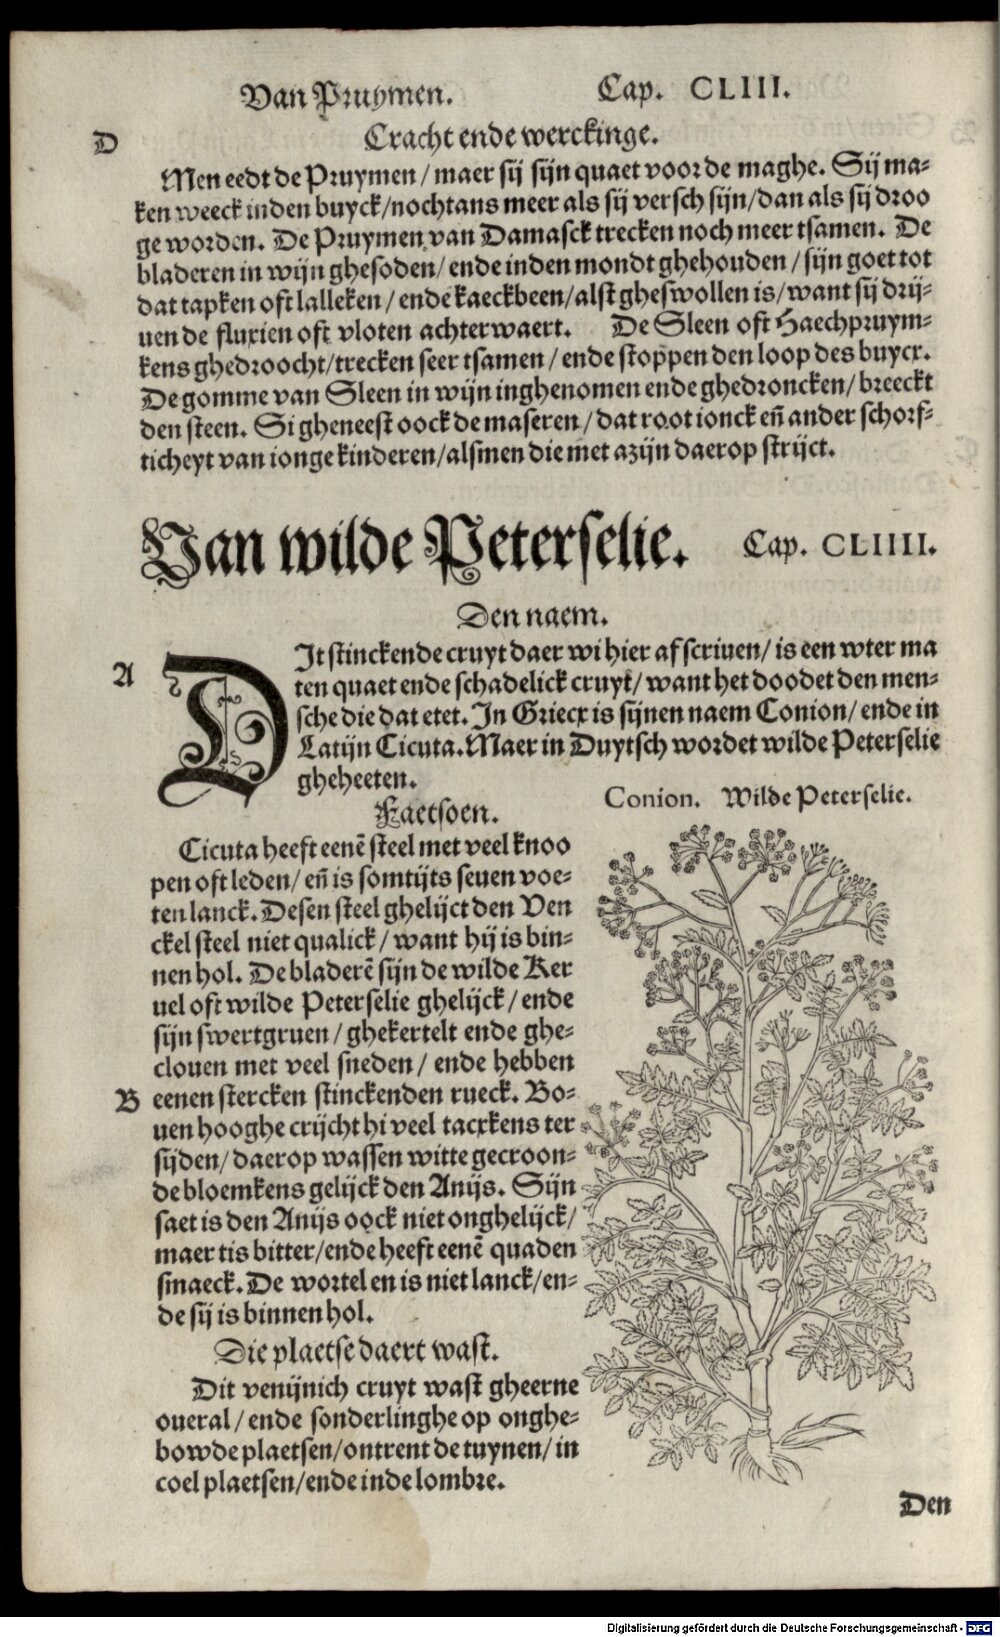 Van Pruymen. Cap. CLIII.
Cracht ende werckinge.
D
Men eedt de Pruymen / maer sij sijn quaet voor de maghe. Sij ma-
ken weeck inden buyck/nochtans meer als sij versch sijn/dan als sij droo
ge worden. De Pruymen van Damasck trecken noch meer tsamen. De
bladeren in wijn ghesoden/ ende inden mondt ghehouden / sijn goet tot
dat tapken oft lalleken / ende kaeckbeen/alst gheswollen is/ want sij drij-
uen de fluxien oft vloten achterwaert. De Sleen oft Haechpruym-
kens ghedroocht/trecken seer tsamen / ende stoppen den loop des buycx.
De gomme van Sleen in wijn inghenomen ende ghedroncken/ breeckt
den steen. Si gheneest oock de maseren / dat root ionck en̄ ander schorf-
ticheyt van ionge kinderen/alsmen die met azijn daerop strijct.
Van wilde Peterselie. Cap. CLIIII.
Den naem.
A
DIt stinckende cruyt daer wi hier af scriuen/ is een wter ma
ten quaet ende schadelick cruyt/ want het doodet den men-
sche die dat etet. In Griecx is sijnen naem Conion/ ende in
Latijn Cicuta. Maer in Duytsch wordet wilde Peterselie
gheheeten.
Faetsoen.
Conion. Wilde Peterselie.
Cicuta heeft eenē steel met veel knoo
pen oft leden/ en̄ is somtijts seuen voe-
ten lanck. Desen steel ghelijct den Ven
ckel steel niet qualick / want hij is bin-
nen hol. De bladerē sijn de wilde Ker
uel oft wilde Peterselie ghelijck / ende
sijn swertgruen / ghekertelt ende ghe-
clouen met veel sneden / ende hebben
B eenen stercken stinckenden rueck. Bo-
uen hooghe crijcht hi veel tacxkens ter
sijden/ daerop wassen witte gecroon-
de bloemkens gelijck den Anijs. Sijn
saet is den Anijs oock niet onghelijck/
maer tis bitter/ende heeft eenē quaden
smaeck. De wortel en is niet lanck/en-
de sij is binnen hol.
Die plaetse daert wast.
Dit venijnich cruyt wast gheerne
oueral / ende sonderlinghe op onghe-
bowde plaetsen/ontrent de tuynen/ in
coel plaetsen/ende inde lombre.
Den
Digitalisierung gefördert durch die Deutsche Forschungsgemeinschaft - DFG